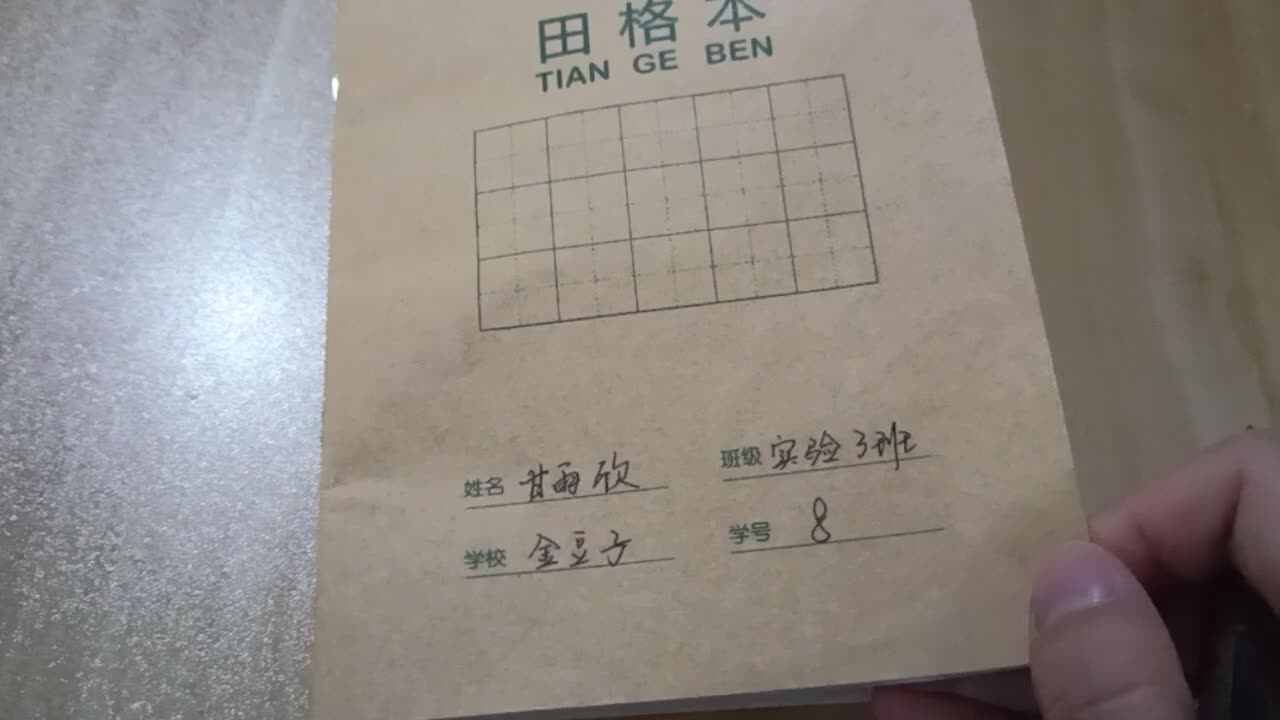 田格本
TIAN GE BEN
姓名 甘雨欣 班级 实验3班
学校 金豆子 学号 8